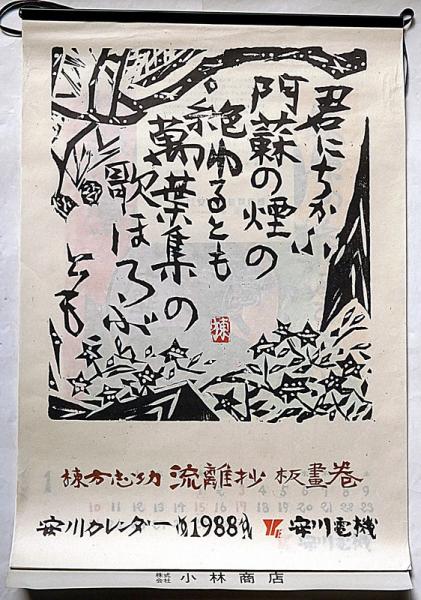 君にちかふ
阿蘇の煙の
絶ゆるとも
萬葉集の
歌ほろぶ
とも
棟
棟方志功 流離抄 板畫巻
安川カレンダー 1988 安川電機
株式会社 小林商店